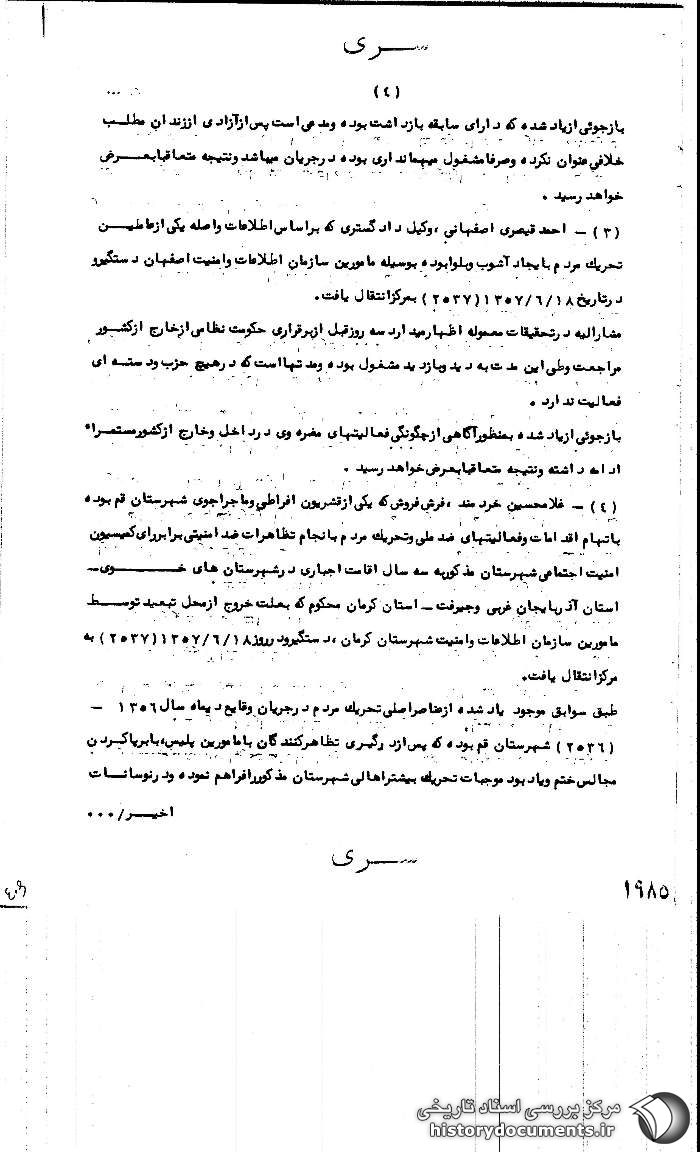 ســـری
(٤)
بازجوئی ازیاد شده که دارای سابقه بازداشت بوده ومدعی است پس ازآزادی اززندان مطلب
خلافی عنوان نکرده وصرفا مشغول میهمانداری بوده درجریان میباشد ونتیجه متعاقبا بعـــرض
خواهد رسید .
(۳) - احمد قیصری اصفهانی ، وکیل دادگستری که براساس اطلاعات واصله یکی ازعاملیـن
تحریك مردم بایجاد آشوب وبلوا بوده بوسیله مامورین سازمان اطلاعات وامنیت اصفهان دستگیرو
درتاریخ ۱۳۵۷/۶/۱۸ (۲۵۳۷) بمرکز انتقال یافت.
مشارالیه درتحقیقات معموله اظهارمیدارد سه روزقبل ازبرقراری حکومت نظامی ازخارج ازکشور
مراجعت وطی این مدت به دید وبازدید مشغول بوده ومدتهااست که درهیچ حزب ودسته ای
فعالیت ندارد .
بازجوئی ازیاد شده بمنظورآگاهی ازچگونگی فعالیتهای مضره وی در داخل وخارج ازکشورمستمرا"
ادامه داشته ونتیجه متعاقبا بعرض خواهد رسید .
(٤) - غلامحسین خردمند ، فرش فروش که یکی ازقشریون افراطی وماجراجوی شهرستان قم بوده
باتهام اقدامات وفعالیتهای ضد ملی وتحریك مردم بانجام تظاهرات ضد امنیتی برابررای کمیسیون
امنیت اجتماعی شهرستان مذکوربه سه سال اقامت اجباری درشهرستان های خـــوی ـ
استان آذربایجان غربی وجیرفت - استان کرمان محکوم که بعلت خروج ازمحل تبعید توسـط
مامورین سازمان اطلاعات وامنیت شهرستان کرمان ، دستگیرودرروز ۱۳۵۷/۶/۱۸ (۲۵۳۷) به
مرکز انتقال یافت.
طبق سوابق موجود یاد شده ازعناصراصلی تحریك مردم درجریان وقایع دیماه سال ۱۳۵۶ -
(۲۵۳۶) شهرستان قم بوده که پس ازدرگیری تظاهرکنندگان بامامورین پلیس، بابرپاکردن
مجالس ختم ویادبود موجبات تحریك بیشتراهالی شهرستان مذکوررافراهم نموده ودرنوسانات
اخیـــر/۰۰۰
ســـری
۱۹۸۵
مرکز بررسی اسناد تاریخی
historydocuments.ir